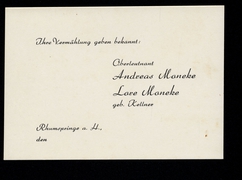 Ihre Vermählung geben bekannt:
Oberleutnant
Andreas Moneke
Lore Moneke
geb. Kettner
Rhumspringe a. H.,
den